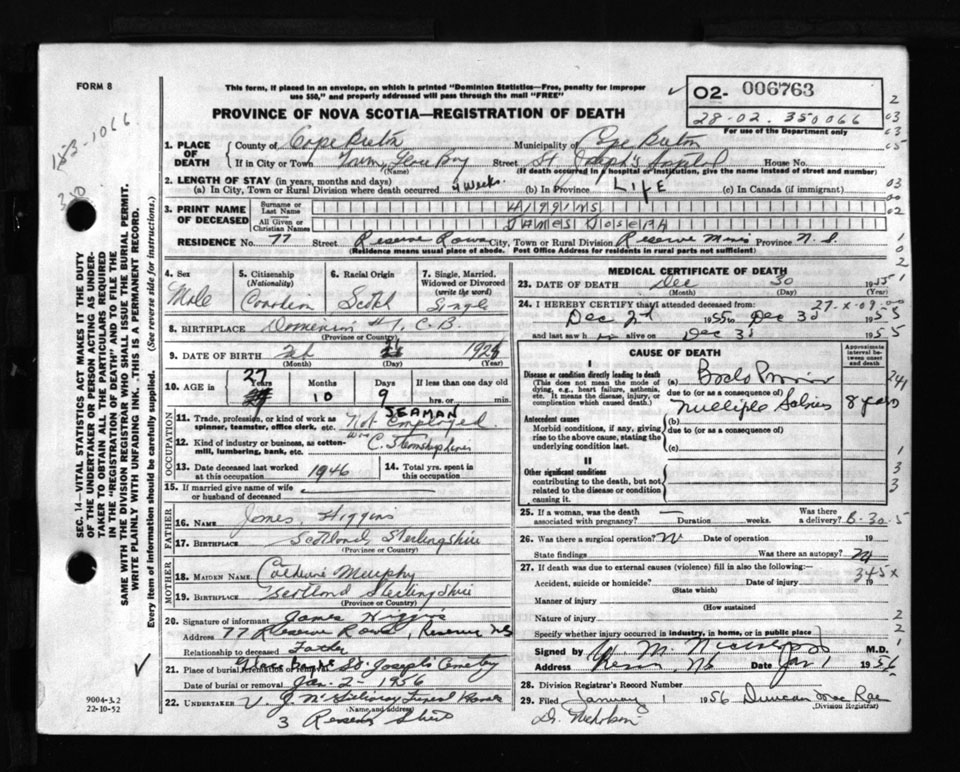 FORM 8
This form, if placed in an envelope, on which is printed "Dominion Statistics—Free, penalty for improper
use $50," and properly addressed will pass through the mail "FREE"
PROVINCE OF NOVA SCOTIA—REGISTRATION OF DEATH
02- 006763
28-02. 350066
For use of the Department only
153-1066
350
SEC. 14—VITAL STATISTICS ACT MAKES IT THE DUTY
OF THE UNDERTAKER OR PERSON ACTING AS UNDER-
TAKER TO OBTAIN ALL THE PARTICULARS REQUIRED
IN THE "REGISTRATION OF DEATH" AND TO FILE THE
SAME WITH THE DIVISION REGISTRAR WHO SHALL ISSUE THE BURIAL PERMIT.
WRITE PLAINLY WITH UNFADING INK. THIS IS A PERMANENT RECORD.
Every item of information should be carefully supplied. (See reverse side for instructions.)
1. PLACE OF DEATH
County of Cape Breton Municipality of Cape Breton
If in City or Town Glace Bay Street St Joseph's Hospital House No.
(Name) (If death occurred in a hospital or institution, give the name instead of street and number)
2. LENGTH OF STAY (in years, months and days)
(a) In City, Town or Rural Division where death occurred 4 Weeks (b) In Province LIFE (c) In Canada (if immigrant)
3. PRINT NAME OF DECEASED
Surname or Last Name HIGGINS
All Given or Christian Names JAMES JOSEPH
RESIDENCE No. 77 Street Reserve Rows City, Town or Rural Division Reserve Mines Province N.S.
(Residence means usual place of abode. Post Office Address for residents in rural parts not sufficient)
4. Sex Male
5. Citizenship (Nationality) Canadian
6. Racial Origin Scotch
7. Single, Married, Widowed or Divorced (write the word) Single
8. BIRTHPLACE Dominion #1, C.B.
(Province or County)
9. DATE OF BIRTH Feb 1928
(Month) (Day) (Year)
10. AGE in 27 Years 10 Months 9 Days If less than one day old hrs. or min.
OCCUPATION
11. Trade, profession, or kind of work as spinner, teamster, office clerk, etc. SEAMAN
Not Employed
12. Kind of industry or business, as cotton-mill, lumbering, bank, etc. C. Steamship Lines
13. Date deceased last worked at this occupation 1946
14. Total yrs. spent in this occupation
15. If married give name of wife or husband of deceased
FATHER
16. NAME James Higgins
17. BIRTHPLACE Scotland Sterlingshire
(Province or Country)
MOTHER
18. MAIDEN NAME Catherine Murphy
19. BIRTHPLACE Scotland Sterlingshire
(Province or Country)
20. Signature of informant James Higgins
Address 77 Reserve Rows, Reserve NS
Relationship to deceased Father
21. Place of burial, cremation or removal St. Joseph's Cemetery
Date of burial or removal Jan. 2 - 1956
22. UNDERTAKER V. J. McGillivray Funeral Home
(Name and address)
3 Reserve Street
MEDICAL CERTIFICATE OF DEATH
23. DATE OF DEATH Dec 30 1955
(Month) (Day) (Year)
24. I HEREBY CERTIFY that I attended deceased from: 27-X-09
Dec 2nd 1955 to Dec 30 1955
and last saw him alive on Dec 30 1955
CAUSE OF DEATH
Approximate interval between onset and death
I
Disease or condition directly leading to death
(This does not mean the mode of dying, e.g., heart failure, asthenia, etc. It means the disease, injury, or complication which caused death.)
(a)
due to (or as a consequence of)
Multiple 8 years
Antecedent causes
Morbid conditions, if any, giving rise to the above cause, stating the underlying condition last.
(b)
due to (or as a consequence of)
(c)
II
Other significant conditions
contributing to the death, but not related to the disease or condition causing it.
25. If a woman, was the death associated with pregnancy? — Duration weeks. Was there a delivery? B-30.5
26. Was there a surgical operation? No Date of operation 19
State findings Was there an autopsy? No
27. If death was due to external causes (violence) fill in also the following:—
345X
Accident, suicide or homicide? Date of injury 19
(State which)
Manner of injury
(How sustained
Nature of injury
Specify whether injury occurred in industry, in home, or in public place
Signed by M.D.
Address Date Jan 1 1956
28. Division Registrar's Record Number
29. Filed January 1 1956 Duncan MacRae
(Division Registrar)
D. Nicholson
9004-3.2
22-10-52